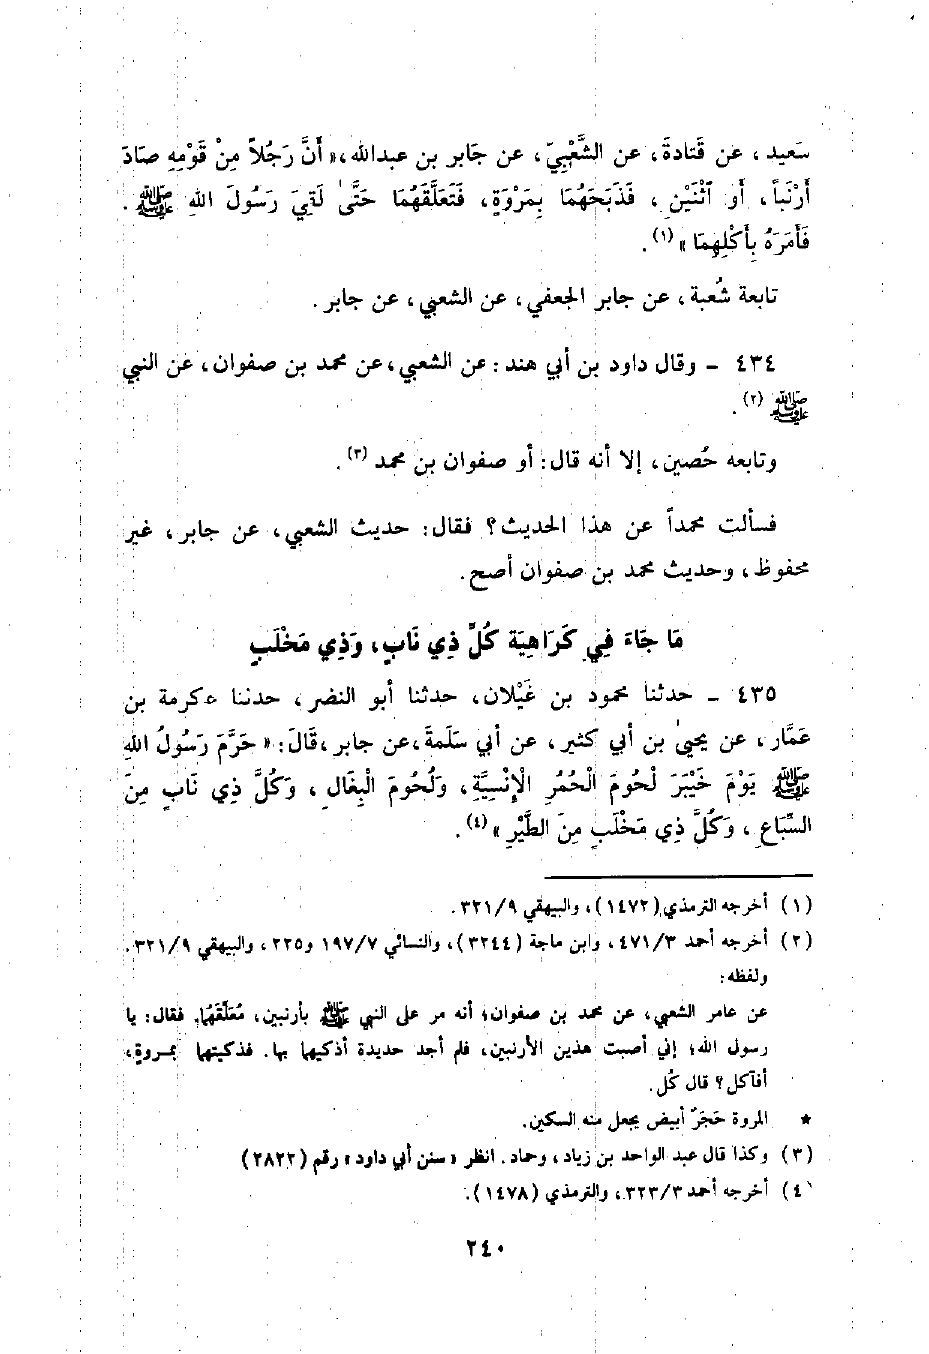 سَعيد، عن قَتَادةَ، عن الشَّعْبِيّ، عن جَابر بن عبدالله، « أَنَّ رَجُلاً مِنْ قَوْمِهِ صَادَ
أَرْنَباً، أو ٱثْنَيْنِ، فَذَبَحَهُمَا بِمَرْوَةٍ، فَتَعَلَّقَهُمَا حَتَّىٰ لَقِيَ رَسُولَ اللهِ ﷺ.
فَأَمَرَهُ بِأَكْلِهِمَا » (١).
تابعة شُعبة، عن جابر الجعفي، عن الشعبي، عن جابر.
٤٣٤ - وقال داود بن أبي هند: عن الشعبي، عن محمد بن صفوان، عن النبي
ﷺ (٢).
وتابعه حُصين، إلا أنه قال: أو صفوان بن محمد (٣).
فسألت محمداً عن هذا الحديث؟ فقال: حديث الشعبي، عن جابر، غير
محفوظ، وحديث محمد بن صفوان أصح.
مَا جَاءَ فِي كَرَاهِيَة كُلِّ ذِي نَابٍ، وَذِي مَخْلَبٍ
٤٣٥ - حدثنا محمود بن غَيْلان، حدثنا أبو النضر، حدثنا عكرمة بن
عَمَّار، عن يحيىٰ بن أبي كثير، عن أبي سَلَمةَ، عن جابر، قَالَ: « حَرَّمَ رَسُولُ اللهِ
ﷺ يَوْمَ خَيْبَرَ لُحومَ الْحُمُرِ الْإِنْسِيَّةِ، وَلُحُومَ الْبِغَالِ، وَكُلَّ ذِي نَابٍ مِنَ
السِّبَاعِ، وَكُلَّ ذِي مَخْلَبٍ مِنَ الطَّيْرِ » (٤).
(١) أخرجه الترمذي (١٤٧٢)، والبيهقي ٣٢١/٩.
(٢) أخرجه أحمد ٤٧١/٣، وابن ماجة (٣٢٤٤)، والنسائي ١٩٧/٧ و٢٢٥، والبيهقي ٣٢١/٩.
ولفظه:
عن عامر الشعبي، عن محمد بن صفوان؛ أنه مر على النبي ﷺ بأرنبين، مُعَلِّقَهُمَا. فقال: يا
رسول الله؛ إني أصبت هذين الأرنبين، فلم أجد حديدة أذكيهما بها. فذكيتهما بمروةٍ،
أفآكل؟ قال كُل.
★ المروة حَجَرٌ أبيض يجعل منه السكين.
(٣) وكذا قال عبد الواحد بن زياد، وحماد. انظر « سنن أبي داود » رقم (٢٨٢٢)
(٤) أخرجه أحمد ٣٢٣/٣، والترمذي (١٤٧٨).
٢٤٠